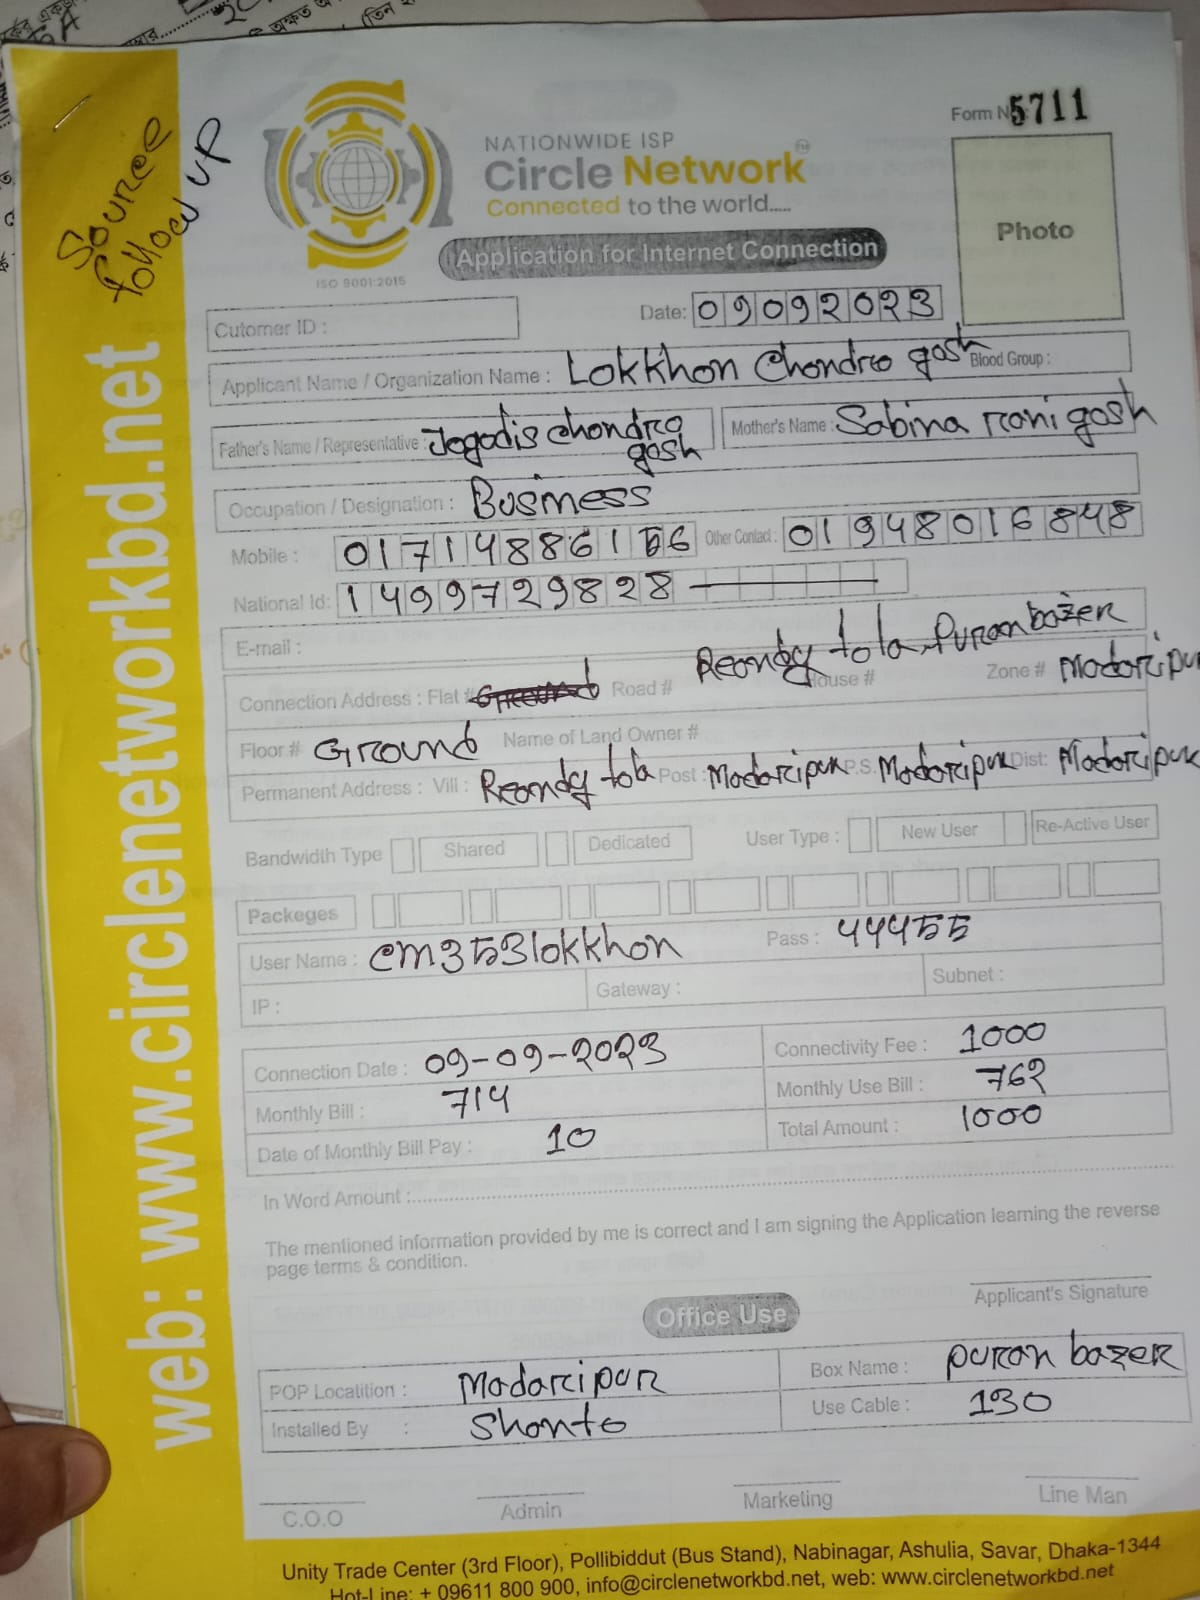 Source
follow UP
Form No 5711
NATIONWIDE ISP
Circle Network
Connected to the world.....
ISO 9001:2015
Application for Internet Connection
Photo
Cutomer ID :
Date: 09092023
Applicant Name / Organization Name : Lokkhon Chondro gosh Blood Group :
Father's Name / Representative : Jogodis chondro gosh Mother's Name : Sabina rani gosh
Occupation / Designation : Business
Mobile : 01714886156 Other Contact : 01948016848
National Id: 1499729828
E-mail :
Reondy tola, Puran bazer
Connection Address : Flat # Ground Road # House # Zone # Madaripur
Floor # Ground Name of Land Owner #
Permanent Address : Vill : Reondy tola Post : Madaripur P.S. Madaripur Dist: Madaripur
Bandwidth Type Shared Dedicated User Type : New User Re-Active User
Packeges
User Name : cm353lokkhon Pass : 44455
IP : Gateway : Subnet :
Connection Date : 09-09-2023 Connectivity Fee : 1000
Monthly Bill : 714 Monthly Use Bill : 762
Date of Monthly Bill Pay : 10 Total Amount : 1000
In Word Amount :
The mentioned information provided by me is correct and I am signing the Application learning the reverse
page terms & condition.
Applicant's Signature
Office Use
POP Locatition : Madaripur Box Name : puran bazer
Installed By : Shanto Use Cable : 130
C.O.O Admin Marketing Line Man
Unity Trade Center (3rd Floor), Pollibiddut (Bus Stand), Nabinagar, Ashulia, Savar, Dhaka-1344
Hot-Line: + 09611 800 900, info@circlenetworkbd.net, web: www.circlenetworkbd.net
web: www.circlenetworkbd.net